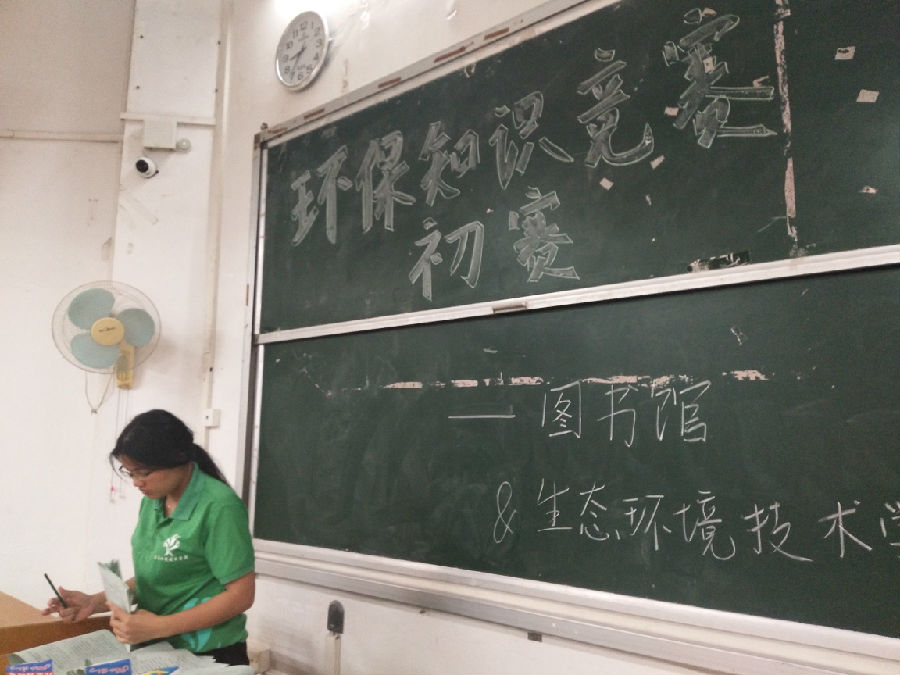 环保知识竞赛
初赛
— 图书馆
& 生态环境技术学